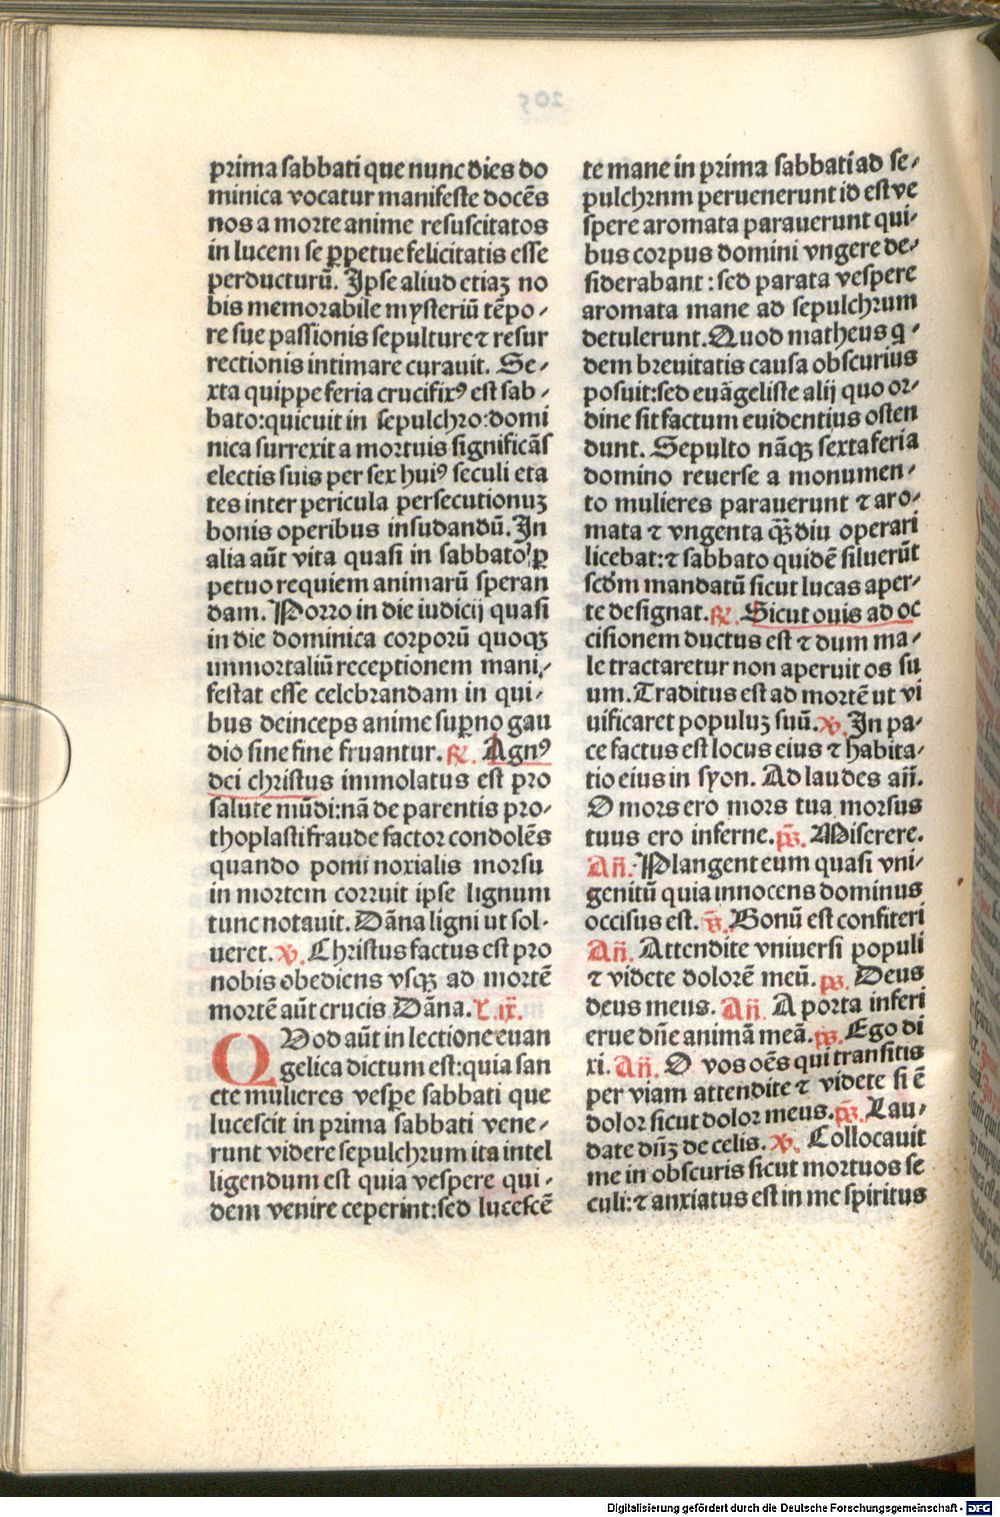 prima sabbati que nunc dies do
minica vocatur manifeste docēs
nos a morte anime resuscitatos
in lucem se ꝑpetue felicitatis esse
perducturū. Ipse aliud etiaꝫ no
bis memorabile mysteriū tēpo⸗
re sue passionis sepulture ⁊ resur
rectionis intimare curauit. Se⸗
xta quippe feria crucifixꝰ est sab⸗
bato: quieuit in sepulchro: domi
nica surrexit a mortuis significās
electis suis per sex huiꝰ seculi eta
tes inter pericula persecutionuꝫ
bonis operibus insudandū. In
alia aūt vita quasi in sabbato ꝑ
petuo requiem animarū speran
dam. Porro in die iudicij quasi
in die dominica corporū quoqꝫ
immortaliū receptionem mani⸗
festat esse celebrandam in qui⸗
bus deinceps anime suꝑno gau
dio sine fine fruantur. ℟. Agnꝰ
dei christus immolatus est pro
salute mūdi: nā de parentis pro⸗
thoplasti fraude factor condolēs
quando pomi noxialis morsu
in mortem corruit ipse lignum
tunc notauit. Dāna ligni ut sol⸗
ueret. ℣. Christus factus est pro
nobis obediens vsqꝫ ad mortē
mortē aūt crucis Dāna. L. ix̄.
QVod aūt in lectione euan
gelica dictum est: quia san
cte mulieres vespe sabbati que
lucescit in prima sabbati vene⸗
runt videre sepulchrum ita intel
ligendum est quia vespere qui⸗
dem venire ceperint: sed lucescē
te mane in prima sabbati ad se⸗
pulchrnm peruenerunt id est ve
spere aromata parauerunt qui⸗
bus corpus domini vngere de⸗
siderabant: sed parata vespere
aromata mane ad sepulchrum
detulerunt. Quod matheus q⸗
dem breuitatis causa obscurius
posuit: sed euāgeliste alij quo or⸗
dine sit factum euidentius osten
dunt. Sepulto nāqꝫ sexta feria
domino reuerse a monumen⸗
to mulieres parauerunt ⁊ aro⸗
mata ⁊ vngenta qꝫ̄diu operari
licebat: ⁊ sabbato quidē siluerūt
scdm mandatū sicut lucas aper⸗
te designat. ℟. Sicut ouis ad oc
cisionem ductus est ⁊ dum ma⸗
le tractaretur non aperuit os su
um. Traditus est ad mortē ut vi
uificaret populuꝫ suū. ℣. In pa⸗
ce factus est locus eius ⁊ habita⸗
tio eius in syon. Ad laudes añ.
O mors ero mors tua morsus
tuus ero inferne. pꝫ̄. Miserere.
Añ. Plangent eum quasi vni⸗
genitū quia innocens dominus
occisus est. p̄s. Bonū est confiteri
Añ. Attendite vniuersi populi
⁊ videte dolorē meū. pꝫ. Deus
deus meus. Añ. A porta inferi
erue dñe animā meā. pꝫ. Ego di
xi. Añ. O vos oēs qui transitis
per viam attendite ⁊ videte si ē
dolor sicut dolor meus. pꝫ̄. Lau⸗
date dn̄ꝫ de celis. ℣. Collocauit
me in obscuris sicut mortuos se
culi: ⁊ anxiatus est in me spiritus
Digitalisierung gefördert durch die Deutsche Forschungsgemeinschaft - DFG